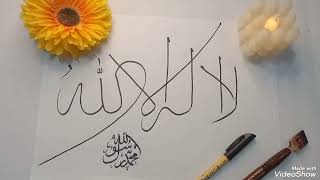 لا إله إلا الله
محمد رسول الله
Made with
VideoShow